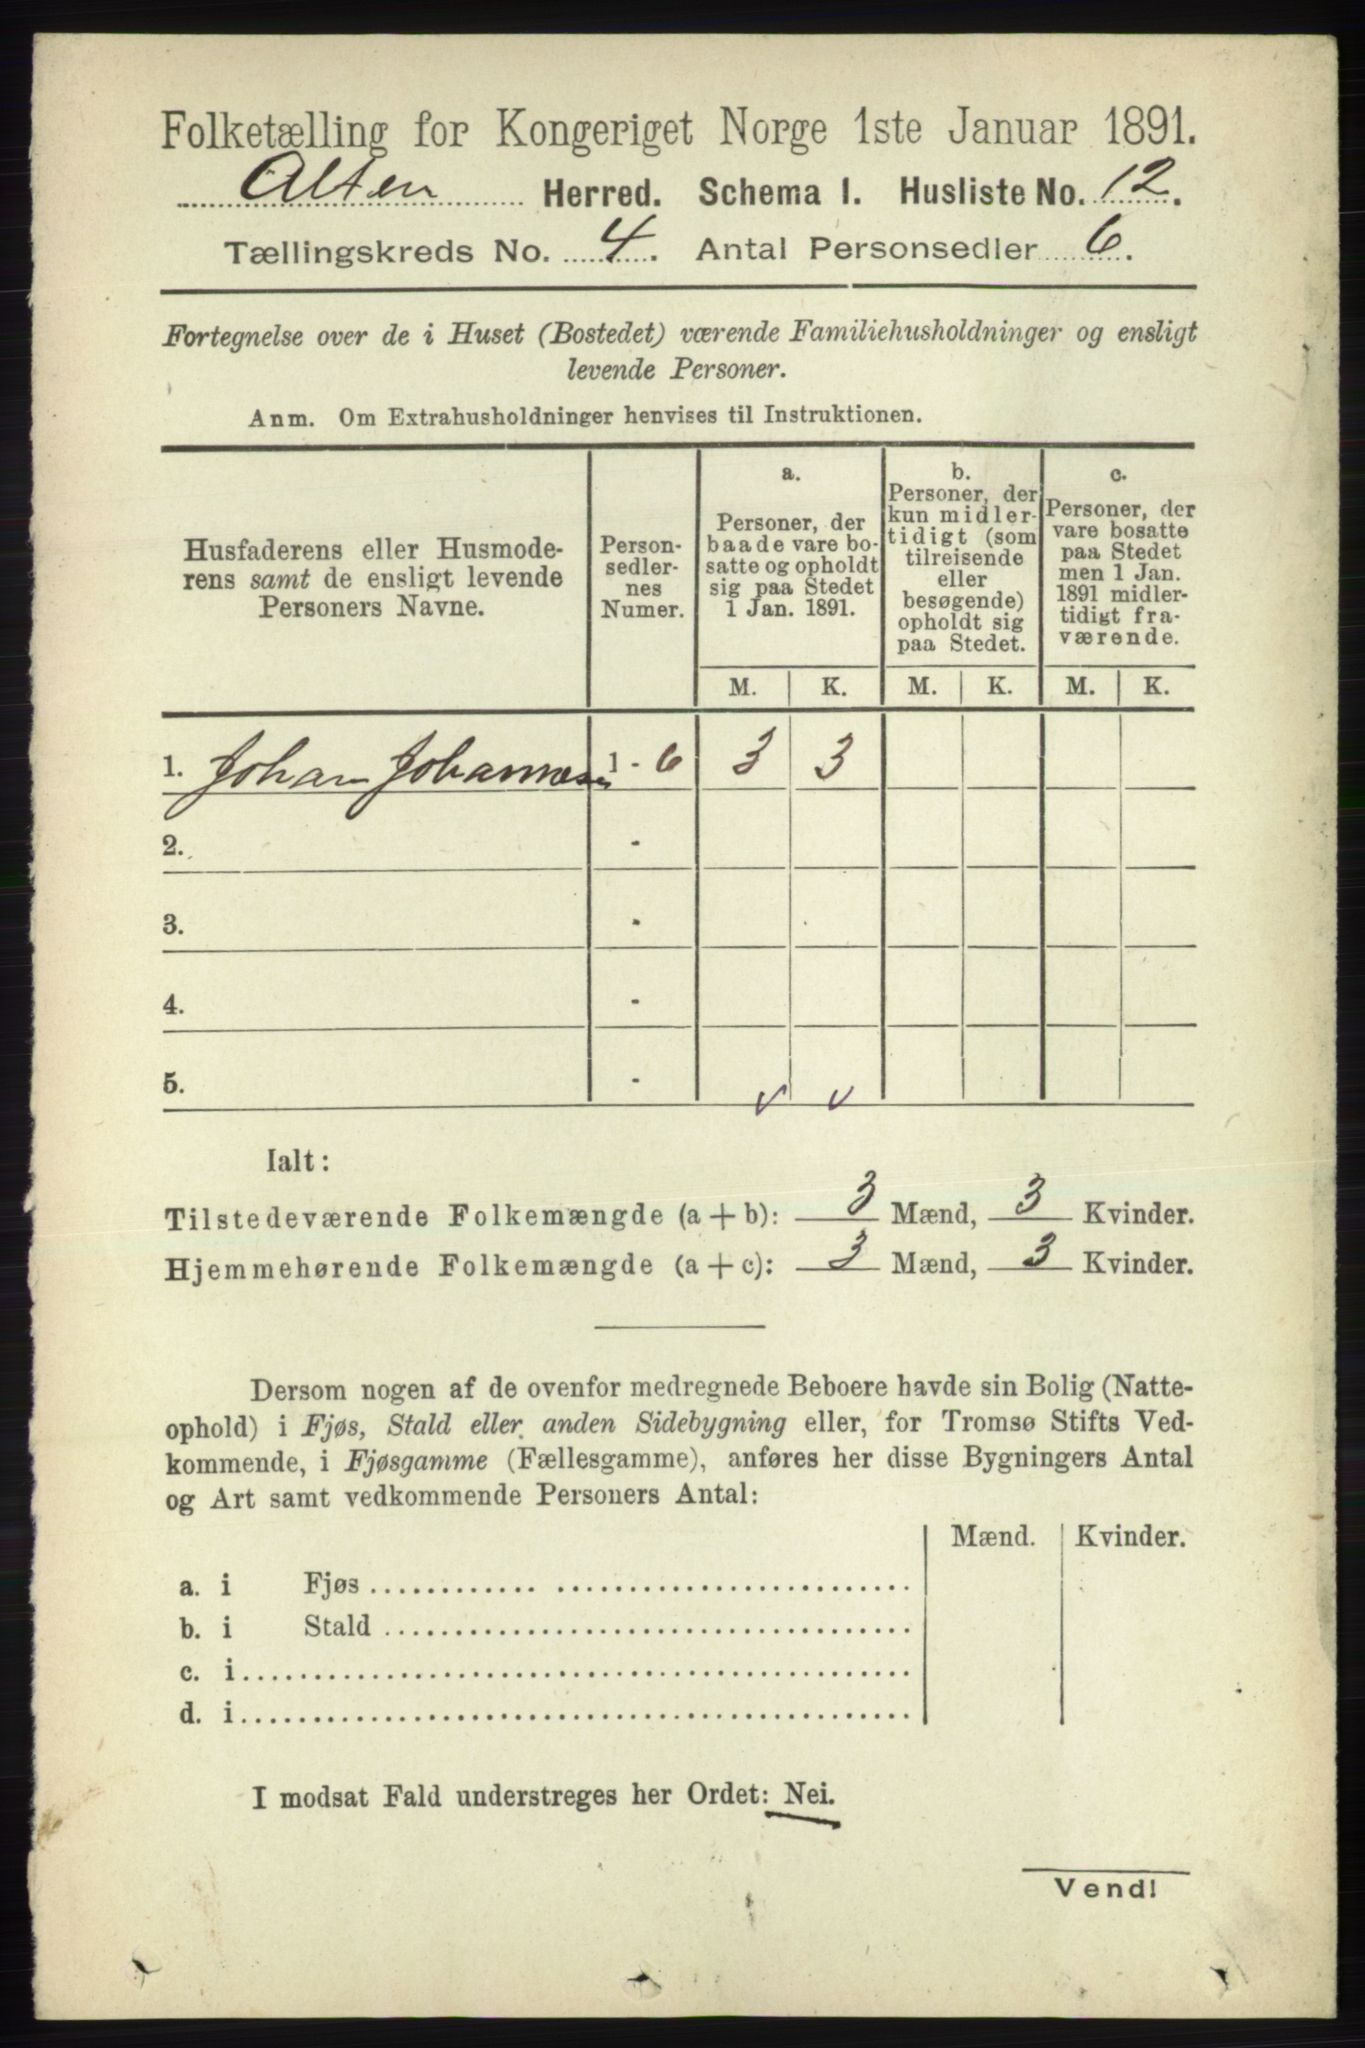 Folketælling for Kongeriget Norge 1ste Januar 1891.
Alten Herred. Schema I. Husliste No. 12.
Tællingskreds No. 4. Antal Personsedler 6.
Fortegnelse over de i Huset (Bostedet) værende Familiehusholdninger og ensligt
levende Personer.
Anm. Om Extrahusholdninger henvises til Instruktionen.
Husfaderens eller Husmode-
rens samt de ensligt levende
Personers Navne.
Person-
sedler-
nes
Numer.
a.
Personer, der
baade vare bo-
satte og opholdt
sig paa Stedet
1 Jan. 1891.
b.
Personer, der
kun midler-
tidigt (som
tilreisende
eller
besøgende)
opholdt sig
paa Stedet.
c.
Personer, der
vare bosatte
paa Stedet
men 1 Jan.
1891 midler-
tidigt fra-
værende.
M. K. M. K. M. K.
1. Johan Johannesen 1 - 6 3 3
2. -
3. -
4. -
5. -
Ialt:
Tilstedeværende Folkemængde (a + b): 3 Mænd, 3 Kvinder.
Hjemmehørende Folkemængde (a + c): 3 Mænd, 3 Kvinder.
Dersom nogen af de ovenfor medregnede Beboere havde sin Bolig (Natte-
ophold) i Fjøs, Stald eller anden Sidebygning eller, for Tromsø Stifts Ved-
kommende, i Fjøsgamme (Fællesgamme), anføres her disse Bygningers Antal
og Art samt vedkommende Personers Antal:
Mænd. Kvinder.
a. i Fjøs
b. i Stald
c. i
d. i
I modsat Fald understreges her Ordet: Nei.
Vend!